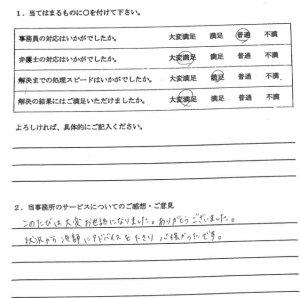 １．当てはまるものに○を付けて下さい。
事務員の対応はいかがでしたか。 大変満足 満足 普通 不満
弁護士の対応はいかがでしたか。 大変満足 満足 普通 不満
解決までの処理スピードはいかがでしたか。 大変満足 満足 普通 不満
解決の結果にはご満足いただけましたか。 大変満足 満足 普通 不満
よろしければ、具体的にご記入ください。
２．当事務所のサービスについてのご感想・ご意見
このたびは大変お世話になりました。ありがとうございました。
状況から冷静にアドバイスを下さり 心強かったです。